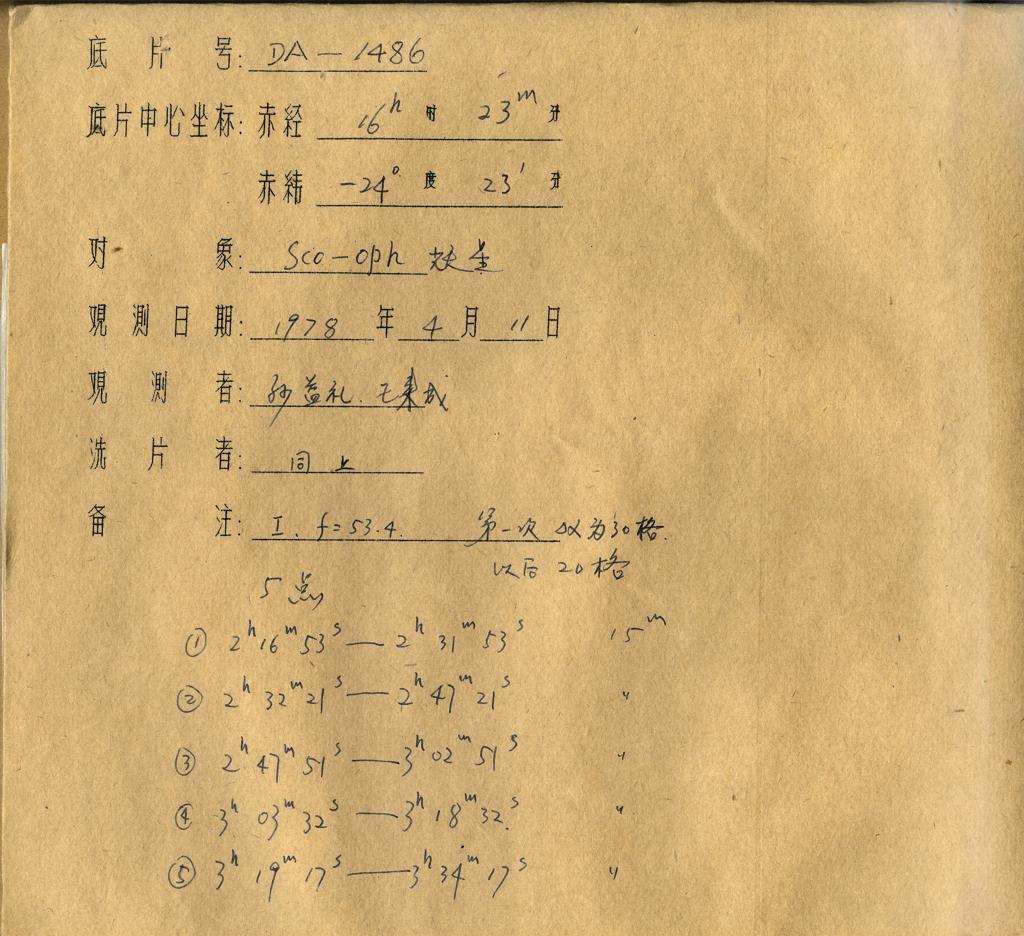 底片号: DA—1486
底片中心坐标: 赤经 16h 时 23m 分
赤纬 -24° 度 23′ 分
对象: Sco-Oph 耀星
观测日期: 1978 年 4 月 11 日
观测者: 孙益礼. 王
洗片者: 同上
备注: I. f=53.4. 第一次 Δα为30格.
以后 20格
5点
① 2h16m53s — 2h31m53s 15m
② 2h32m21s — 2h47m21s "
③ 2h47m51s — 3h02m51s "
④ 3h03m32s — 3h18m32s "
⑤ 3h19m17s — 3h34m17s "